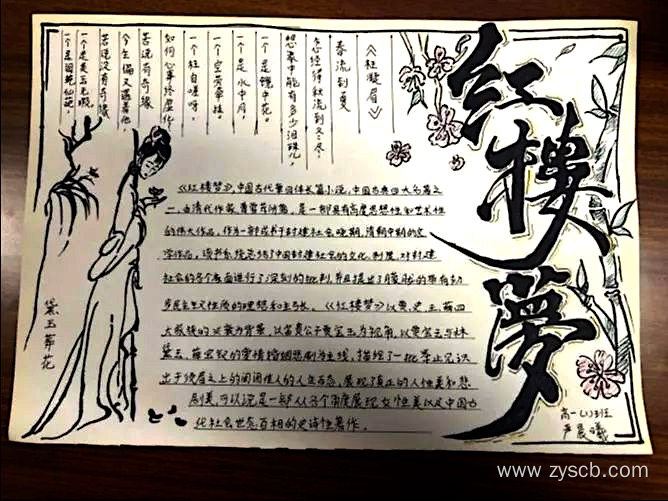 红楼梦
《枉凝眉》
一个是阆苑仙葩,
一个是美玉无瑕
若说没有奇缘
今生偏又遇着他,
若说有奇缘
如何心事终虚化
一个枉自嗟呀,
一个空劳牵挂
一个是水中月,
一个是镜中花
想眼中能有多少泪珠儿,
怎经得秋流到冬尽,
春流到夏
《红楼梦》,中国古代章回体长篇小说,中国古典四大名著之
一,由清代作家曹雪芹所著,是一部具有高度思想性和艺术性
的伟大作品,作为一部成书于封建社会晚期,清朝中期的文
学作品,该书系统总结了中国封建社会的文化、制度,对封建
社会的各个方面进行了深刻的批判,并且提出了朦胧的带有初
步民主主义性质的理想和主张。《红楼梦》以贾、史、王、薛四
大家族的兴衰为背景,以富贵公子贾宝玉为视角,以贾宝玉与林
黛玉、薛宝钗的爱情婚姻悲剧为主线,描绘了一批举止见识
出于须眉之上的闺阁佳人的人生百态,展现了真正的人性美和悲
剧美,可以说是一部从各个角度展现女性美以及中国古
代社会世态百相的史诗性著作。
黛玉葬花
高一(1)班
严晨曦
www.zyscb.com